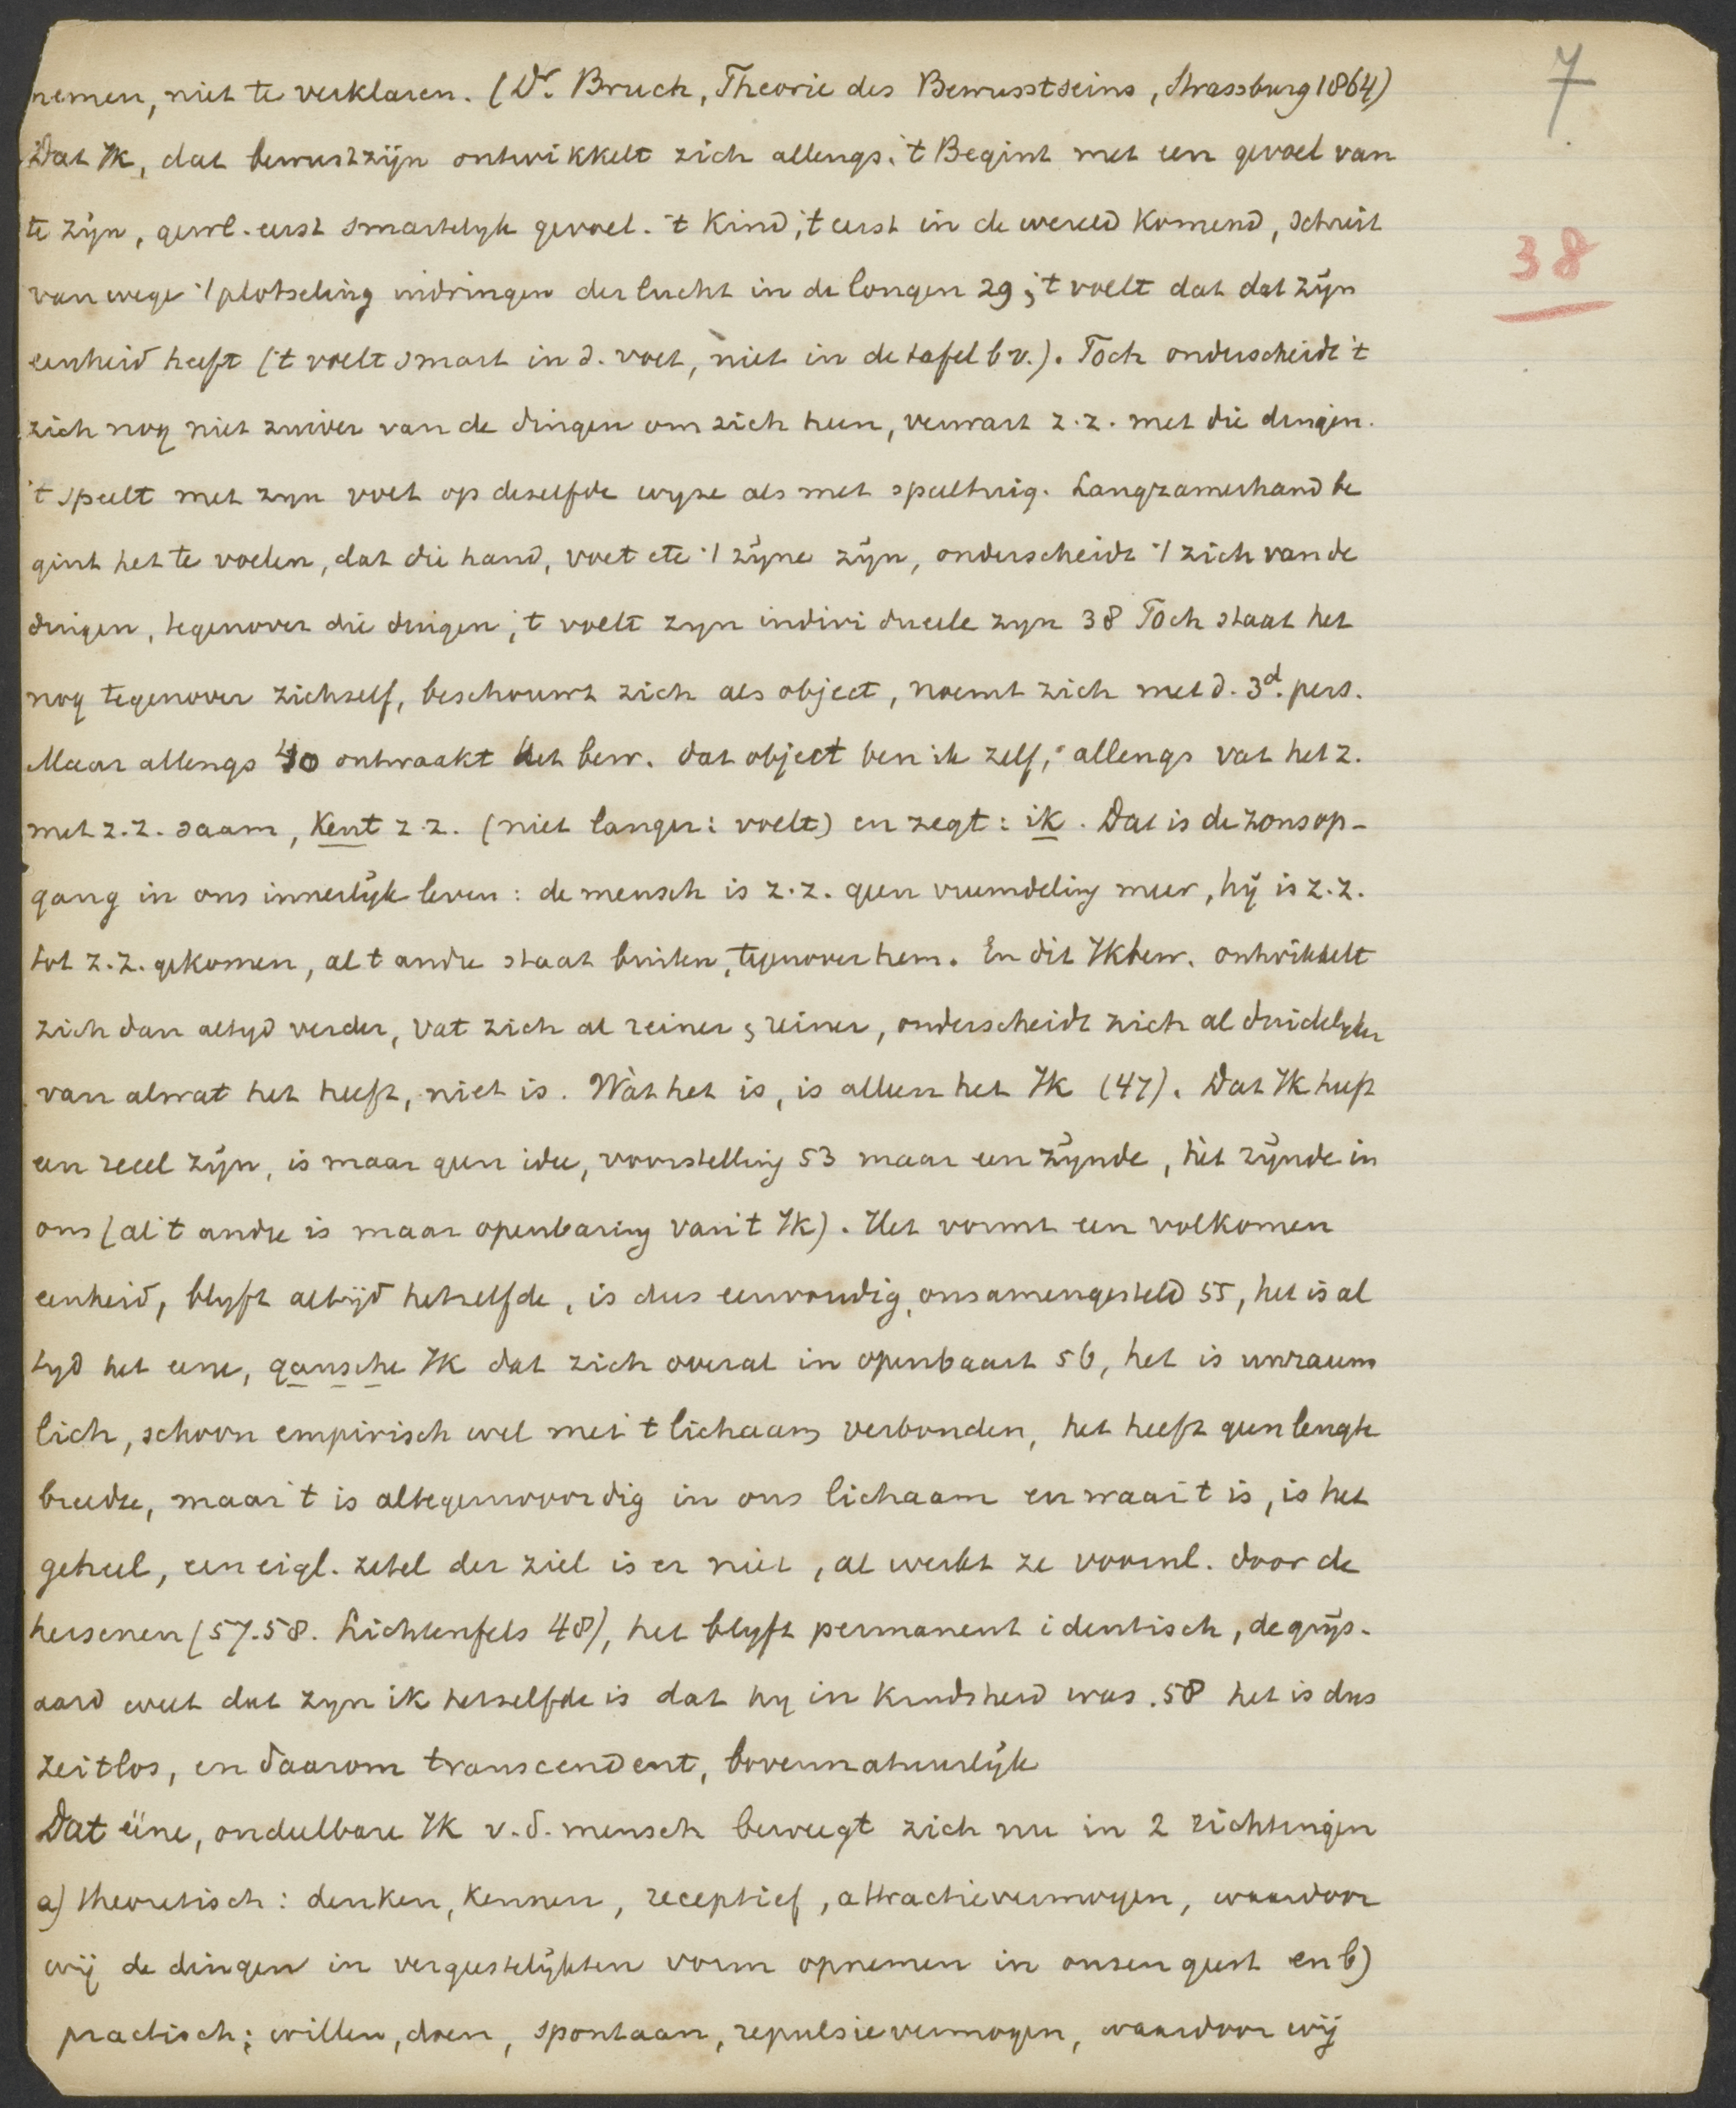 7
nemen, niet te verklaren. (Dr. Bruch, Theorie des Bewusstseins, Strassburg 1864)
Dat Ik, dat bewustzijn ontwikkelt zich allengs. 't Begint met een gevoel van
te zijn, gewl. eerst smartelyk gevoel. 't Kind, 't eerst in de wereld komend, schreit
38
van wege 't plotseling indringen der lucht in de longen 29; 't voelt dat dat zijn
eenheid heeft ('t voelt smart in d. voet, niet in de tafel bv.). Toch onderscheidt 't
zich nog niet zuiver van de dingen om zich heen, verwart z.z. met die dingen.
't speelt met zyn voet op deselfde wyze als met speeltuig. Langzamerhand be
gint het te voelen, dat die hand, voet etc 't zijne zijn, onderscheidt 't zich van de
dingen, tegenover die dingen, 't voelt zyn individueele zyn 38 Toch staat het
nog tegenover zichself, beschouwt zich als object, noemt zich met d. 3d. pers.
Maar allengs 40 ontwaakt het bew. dat object ben ik zelf, allengs vat het z.
met z.z. saam, kent z.z. (niet langer: voelt) en zegt: ik. Dat is de zonsop-
gang in ons innerlijk leven: de mensch is z.z. geen vreemdeling meer, hij is z.z.
tot z.z. gekomen, al t andre staat buiten, tegenover hem. En dit Ikbew. ontwikkelt
zich dan altyd verder, vat zich al reiner & reiner, onderscheidt zich al duidelyker
van alwat het heeft, niet is. Wàt het is, is alleen het Ik (47). Dat Ik heeft
een reeel zijn, is maar geen idee, voorstelling 53 maar een zijnde, hèt zijnde in
ons (al 't andre is maar openbaring van 't Ik). Het vormt een volkomen
eenheid, blyft altijd hetselfde, is dus eenvoudig, onsamengesteld 55, het is al
tyd het eene, gansche Ik dat zich overal in openbaart 56, het is unraum
lich, schoon empirisch wel met 't lichaam verbonden, het heeft geen lengte
breedte, maar 't is altegenwoordig in ons lichaam en waar 't is, is het
geheel, een eigl. zetel der ziel is er niet, al werkt ze voornl. door de
hersenen (57.58. Lichtenfels 48), het blyft permanent identisch, de grijs-
aard weet dat zyn ik hetselfde is dat hy in kindsheid was. 58 het is dus
zeitlos, en daarom transcendent, bovennatuurlijk
Dat eéne, ondeelbare Ik v.d. mensch beweegt zich nu in 2 richtingen
a) theoretisch: denken, kennen, receptief, attractievermogen, waardoor
wij de dingen in vergeestelijkten vorm opnemen in onsen geest en b)
practisch: willen, doen, spontaan, repulsievermogen, waardoor wij